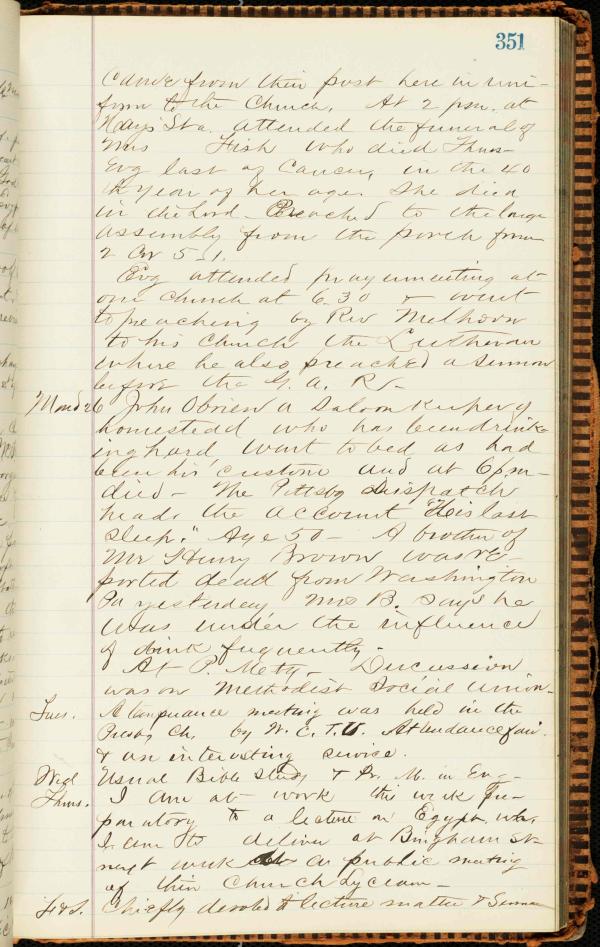 351
Came from their post here in uni-
form to the Church. At 2 p.m. at
Hays Sta. attended the funeral of
Mrs Fish who died Thurs-
Evg last of Cancer, in the 40
th year of her age. She died
in the Lord - Preached to the large
assembly from the porch from
2 Cor 5-1.
Evg attended prayermeeting at
our Church at 6.30 & went
to preaching by Rev Melhorn
to his Church the Lutheran
where he also preached a sermon
before the G. A. R. -
Mond 26 John Obrien a Saloon Keeper of
homestead who has been drink-
ing hard went to bed as had
been his custom and at 6 pm-
died - The Pittsbg Dispatch
heads the account "His last
sleep." Age 50 - A brother of
Mr Henry Brown was re-
ported dead from Washington
Pa yesterday Mrs B. says he
was under the influence
of drink frequently.
At P. Metg - Discussion
was on Methodist Social Union.
Tues. A temperance meeting was held in the
Presby Ch. by W. C. T. U. Attendance fair
& an interesting service.
Wed Usual Bible Study & Pr. M. in Evg-
Thurs. I am at work this week Pre-
paratory to a lecture on Egypt, wh.
I am to deliver at Bingham St-
next week at a public meeting
of their Church Lyceum -
F & S. Chiefly devoted to lecture matter & Sermon